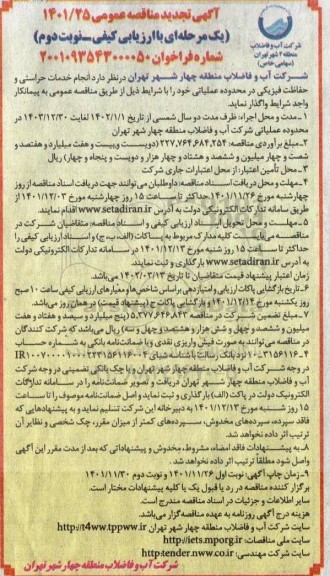 آگهی تجدید مناقصه عمومی ۱۴۰۱/۲۵
(یک مرحله‌ای با ارزیابی کیفی_نوبت دوم)
شماره فراخوان ۲۰۰۱۰۹۳۵۴۳۰۰۰۰۵۰
شرکت آب و فاضلاب
منطقه ۴ شهر تهران
(سهامی خاص)
شرکت آب و فاضلاب منطقه چهار شهر تهران در نظر دارد انجام خدمات حراستی و
حفاظت فیزیکی در محدوده عملیاتی خود را با شرایط ذیل از طریق مناقصه عمومی به پیمانکار
واجد شرایط واگذار نماید.
۱_مدت و محل اجراء: ظرف مدت دو سال شمسی از تاریخ ۱۴۰۲/۱/۱ لغایت ۱۴۰۳/۱۲/۳۰ در
محدوده عملیاتی شرکت آب و فاضلاب منطقه چهار شهر تهران
۲_مبلغ برآوردی مناقصه: ۲۲۷,۷۶۴,۶۸۴,۲۵۴ (دویست و بیست و هفت میلیارد و هفتصد و
شصت و چهار میلیون و ششصد و هشتاد و چهار هزار و دویست و پنجاه و چهار) ریال
۳_محل تأمین اعتبار: از محل اعتبارات جاری شرکت
۴_مهلت و محل دریافت اسناد مناقصه: داوطلبان می‌توانند جهت دریافت اسناد مناقصه از روز
چهارشنبه مورخ ۱۴۰۱/۱۱/۲۶ حداکثر تا ساعت ۱۵ روز چهارشنبه مورخ ۱۴۰۱/۱۲/۰۳ از
طریق سامانه تدارکات الکترونیکی دولت به آدرس www.setadiran.ir اقدام نمایند.
۵_مهلت و محل تحویل اسناد ارزیابی کیفی و اسناد مناقصه: متقاضیان شرکت در
مناقصه می‌بایست کلیه مدارک مربوط به پاکات (الف، ب، ج) و اسناد ارزیابی کیفی را
حداکثر تا ساعت ۱۵ روز شنبه مورخ ۱۴۰۱/۱۲/۱۳ در سامانه تدارکات الکترونیکی دولت
به آدرس www.setadiran.ir بارگذاری و ثبت نمایند.
زمان اعتبار پیشنهاد قیمت متقاضیان تا تاریخ ۱۴۰۲/۰۳/۱۳ می‌باشد.
۶_تاریخ بازگشایی پاکات ارزیابی و امتیازدهی براساس شاخص‌ها و معیارهای ارزیابی کیفی ساعت ۱۰ صبح
روز یکشنبه مورخ ۱۴۰۱/۱۲/۱۴ و بازگشایی پاکات ج (پیشنهاد قیمت) در همان روز می‌باشد.
۷_مبلغ تضمین شرکت در مناقصه ۵,۳۷۷,۶۴۶,۸۴۳ (پنج میلیارد و سیصد و هفتاد و هفت
میلیون و ششصد و چهل و شش هزار و هشتصد و چهل و سه) ریال می‌باشد که شرکت کنندگان
در مناقصه می‌توانند به صورت فیش واریزی نقدی و یا ضمانت‌نامه بانکی به شماره حساب
در وجه شرکت آب و فاضلاب منطقه چهار شهر تهران و یا چک بانکی تضمینی در وجه شرکت
آب و فاضلاب منطقه چهار شهر تهران دریافت و تصویر ضمانت‌نامه را در سامانه تدارکات
الکترونیک دولت در پاکت (الف) بارگذاری و ثبت نماید و اصل ضمانت‌نامه موصوف را تا ساعت
۱۵ روز شنبه مورخ ۱۴۰۱/۱۲/۱۳ به دبیرخانه این شرکت تسلیم نماید و به پیشنهادهایی که
فاقد سپرده، سپرده‌های مخدوش، سپرده‌های کمتر از میزان مقرر، چک شخصی و نظایر آن
ترتیب اثر داده نخواهد شد.
۸_به پیشنهادات فاقد امضاء، مشروط، مخدوش و پیشنهاداتی که بعد از مدت مقرر این آگهی
واصل شود مطلقاً ترتیب اثر داده نخواهد شد.
۹_زمان چاپ آگهی: نوبت اول ۱۴۰۱/۱۱/۲۶ و نوبت دوم ۱۴۰۱/۱۱/۳۰
برگزار کننده مناقصه در رد یا قبول یک یا کلیه پیشنهادات مختار است.
سایر اطلاعات و جزئیات در اسناد مناقصه مندرج است.
هزینه درج آگهی روزنامه به عهده مناقصه‌گزار می‌باشد.
سایت شرکت آب و فاضلاب منطقه چهار شهر تهران http://t4ww.tppww.ir
سایت ملی مناقصات: http://iets.mporg.ir
سایت شرکت مهندسی: http:tender.nww.co.ir
شرکت آب و فاضلاب منطقه چهار شهر تهران